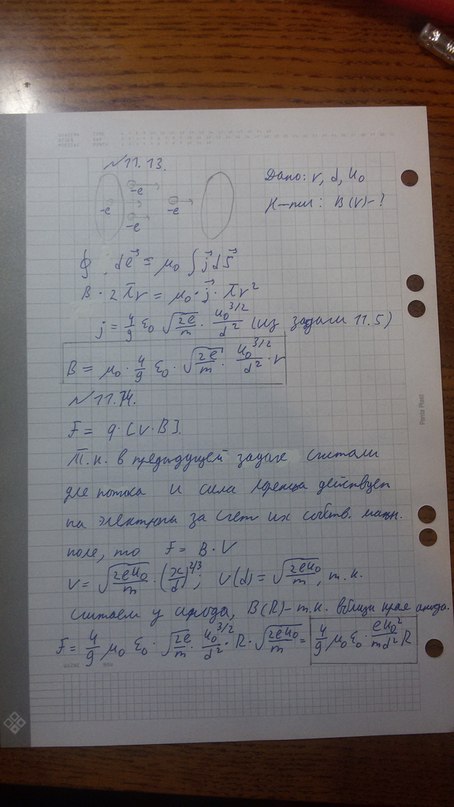 №11.13.
Дано: r, d, U₀
Н-ти: B(r)-?
-e
-e -e -e
-e
∮ dℓ⃗ = μ₀ ∫ j⃗ dS⃗
B · 2πr = μ₀ · j⃗ · πr²
j = 4/9 ε₀ √(2e/m) · U₀^(3/2)/d² (из задачи 11.5)
B = μ₀ · 4/9 ε₀ · √(2e/m) · U₀^(3/2)/d² · r
№11.14.
F = q · [V · B].
Т.к. в предыдущей задаче считали
для потока и сила Лоренца действует
на электроны за счёт их собств. магн.
поле, то F = B · V
V = √(2eU₀/m) · (x/d)^(2/3); V(d) = √(2eU₀/m), т.к.
считаем у анода, B(R) - т.к. вблизи края анода.
F = 4/9 μ₀ ε₀ · √(2e/m) · U₀^(3/2)/d² · R · √(2eU₀/m) = 4/9 μ₀ ε₀ · eU₀²/md² R